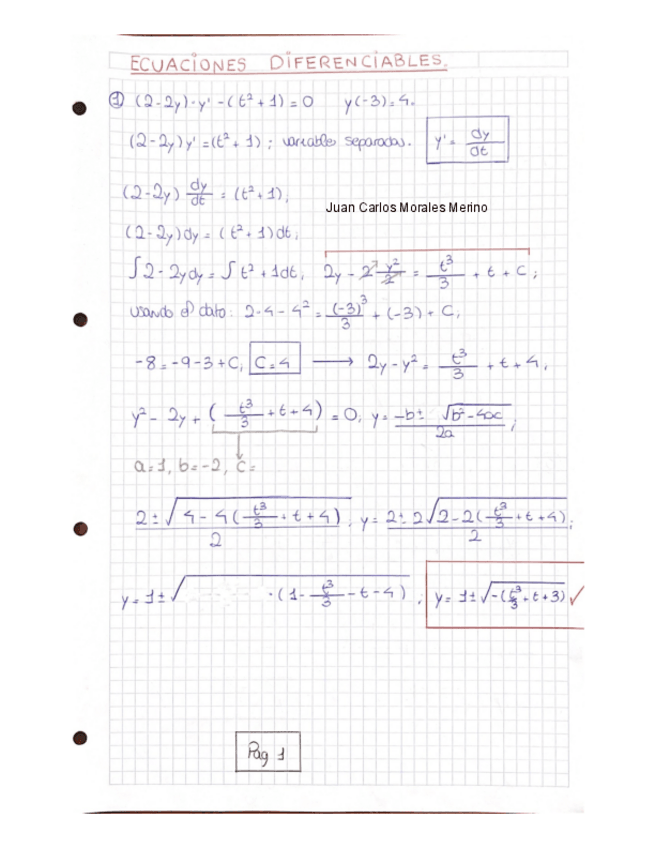 ECUACIONES DIFERENCIABLES.
① (2-2y)·y' - (t² + 1) = 0 y(-3)=4.
(2-2y)y' = (t² + 1) ; variable separadas. y' = dy/dt
(2-2y) dy/dt = (t² + 1),
Juan Carlos Morales Merino
(2-2y)dy = (t² + 1)dt,
∫2-2ydy = ∫t² + 1dt, 2y - 2 y²/2 = t³/3 + t + C ;
usando el dato: 2·4 - 4² = (-3)³/3 + (-3) + C,
-8 = -9 -3 + C, C = 4 → 2y - y² = t³/3 + t + 4,
y² - 2y + ( t³/3 + t + 4) = 0, y = -b ± √b² - 4ac/2a ,
a=1, b=-2, c=
2 ± √4 - 4( t³/3 + t + 4)/2 , y = 2 ± 2√2-2( t³/3 + t + 4)/2 ;
y = 1 ± √ ·(1 - t³/3 - t - 4) ; y = 1 ± √-( t³/3 + t + 3) ✓
Pag 1